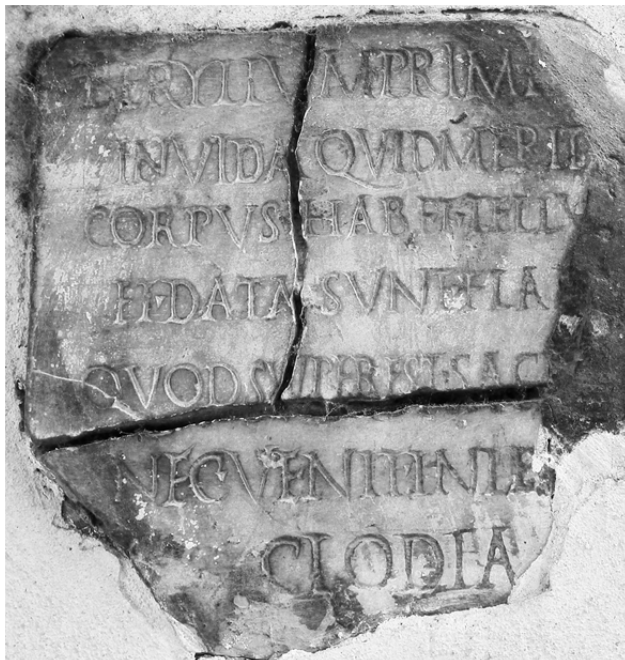 BERYLLVM PRIMI
INVIDA QVID MERIT
CORPVS HABET TELLV
FEDATA SVNT FLA
QVOD SVPEREST SAC
NEC VENIT IN TE
CLODIA